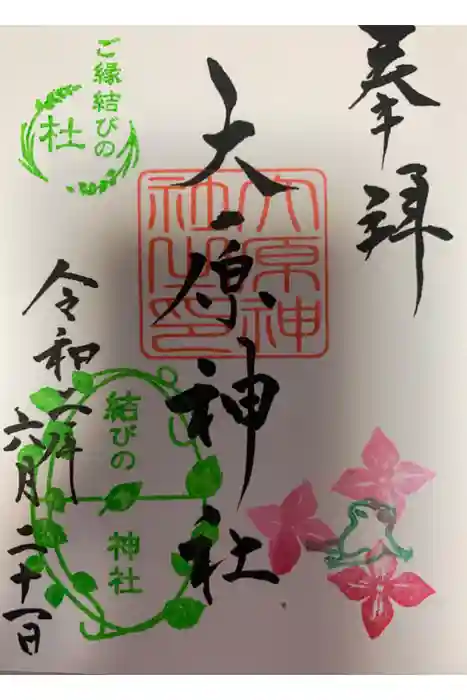 奉拝
大原神社
大原神
社之印
ご縁結びの
杜
結びの
神社
令和六年
六月二十一日